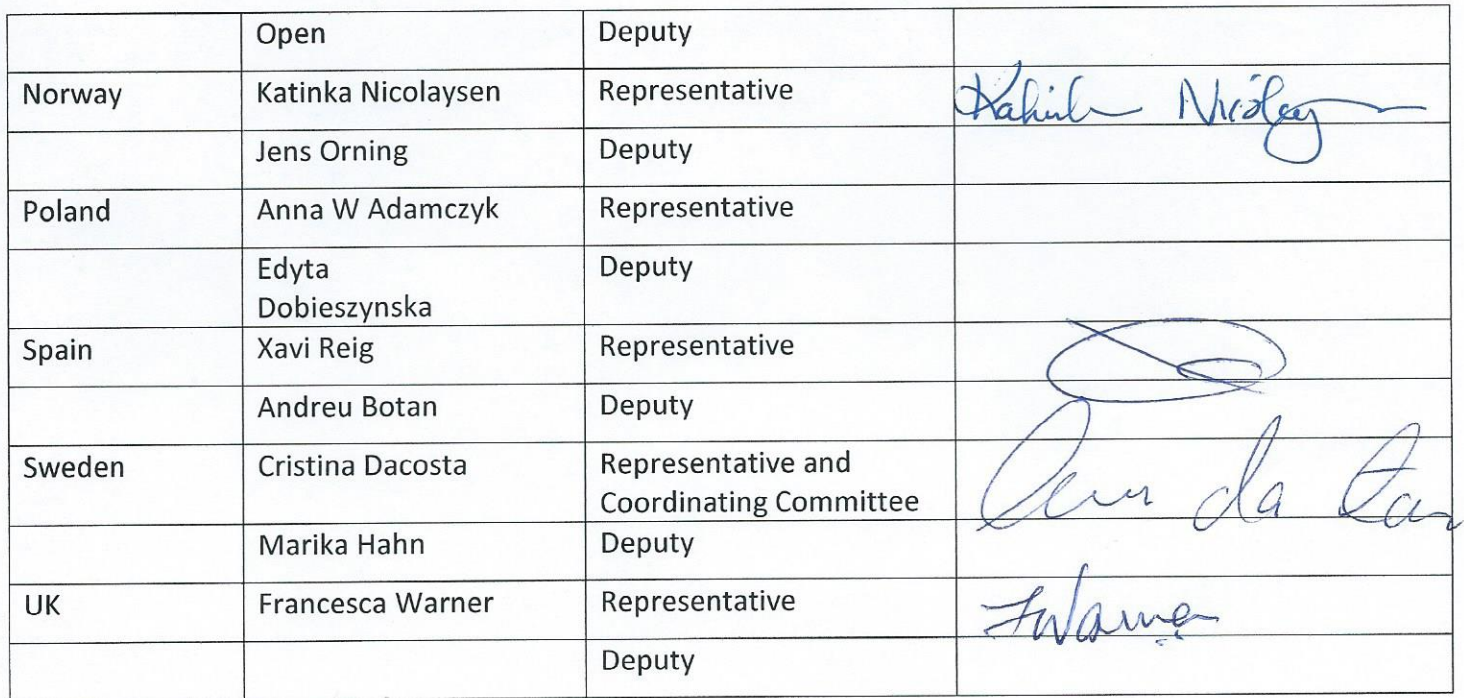 Open Deputy
Norway Katinka Nicolaysen Representative
Jens Orning Deputy
Poland Anna W Adamczyk Representative
Edyta Deputy
Dobieszynska
Spain Xavi Reig Representative
Andreu Botan Deputy
Sweden Cristina Dacosta Representative and
Coordinating Committee
Marika Hahn Deputy
UK Francesca Warner Representative FWarner
Deputy